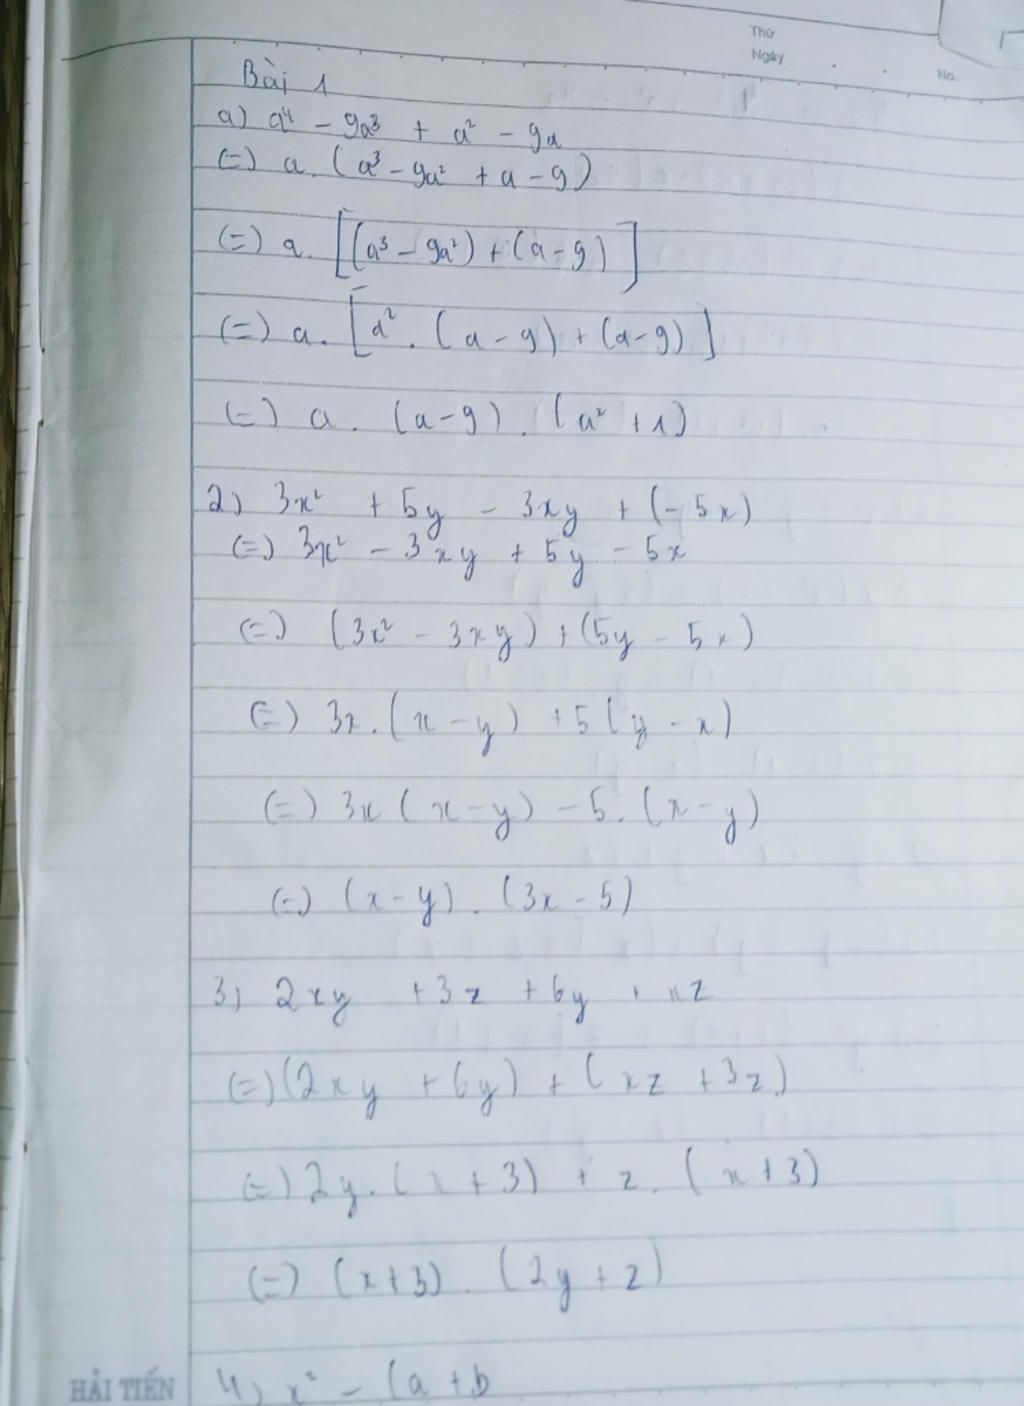 Thứ
Ngày
No.
Bài 1
a) a⁴ - 9a³ + a² - 9a
(=) a. (a³ - 9a² + a - 9)
(=) a. [(a³ - 9a²) + (a - 9)]
(=) a. [a². (a - 9) + (a - 9)]
(=) a. (a - 9). (a² + 1)
2) 3x² + 5y - 3xy + (- 5x)
(=) 3x² - 3xy + 5y - 5x
(=) (3x² - 3xy) + (5y - 5x)
(=) 3x. (x - y) + 5(y - x)
(=) 3x (x - y) - 5. (x - y)
(=) (x - y). (3x - 5)
3) 2xy + 3z + 6y + xz
(=) (2xy + 6y) + (xz + 3z)
(=) 2y. (x + 3) + z. (x + 3)
(=) (x + 3). (2y + z)
4) x² - (a + b
HẢI TIẾN